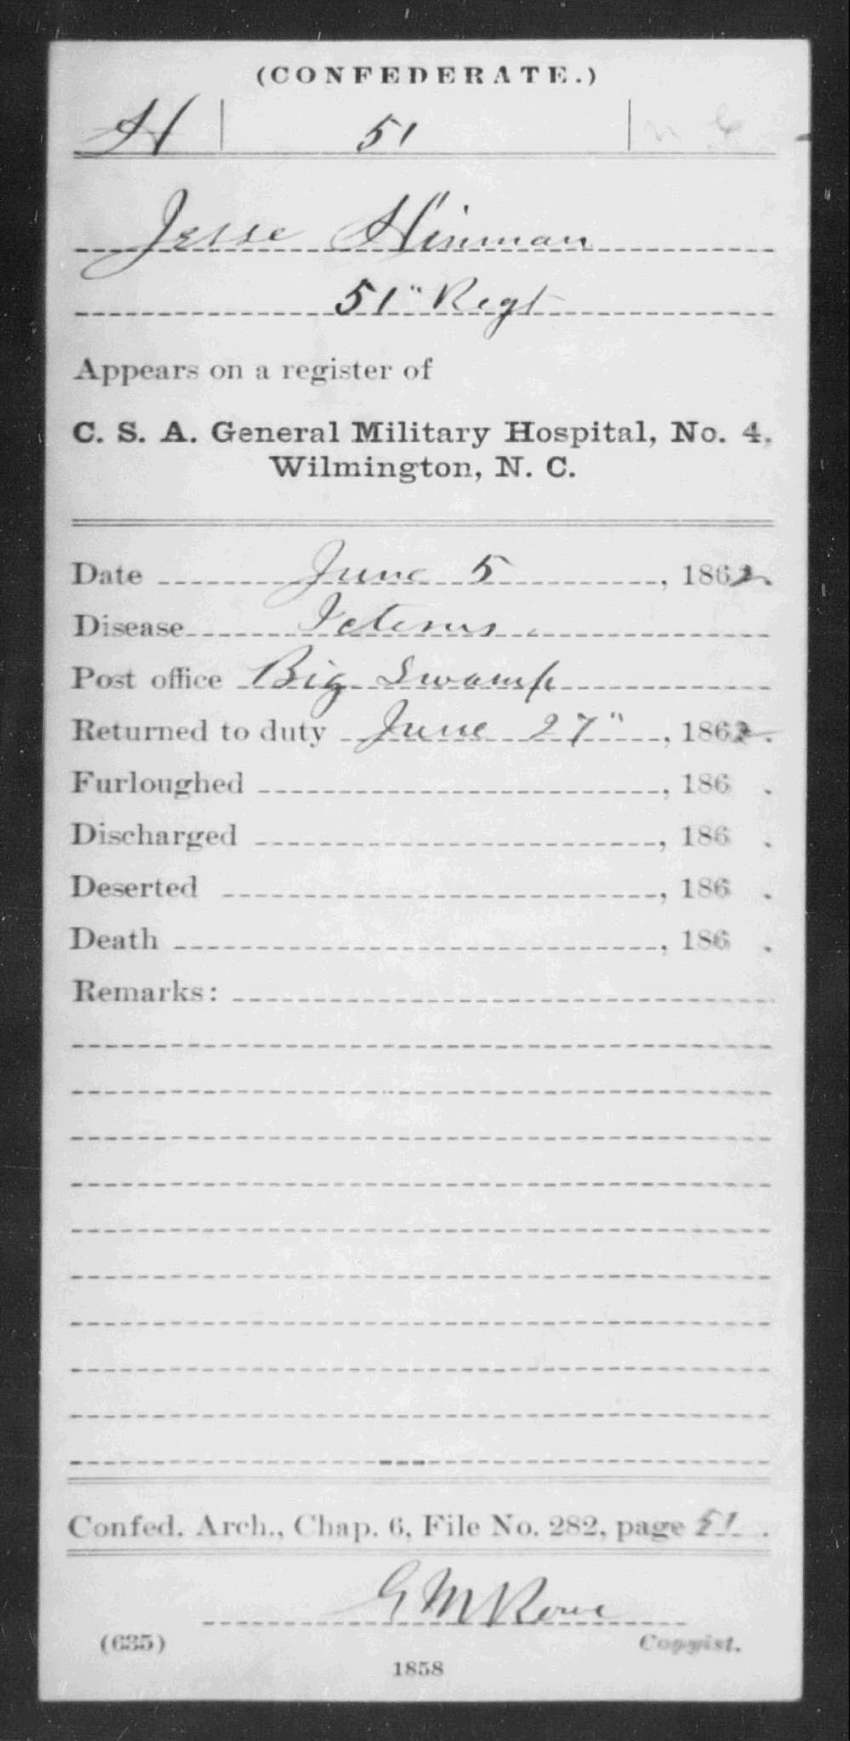 (CONFEDERATE.)
H | 51 | N C
Jesse Hinman
51" Regt
Appears on a register of
C. S. A. General Military Hospital, No. 4,
Wilmington, N. C.
Date June 5, 1862.
Disease Icterus
Post office Big Swamp
Returned to duty June 27", 1862.
Furloughed , 186 .
Discharged , 186 .
Deserted , 186 .
Death , 186 .
Remarks:
Confed. Arch., Chap. 6, File No. 282, page 51.
G M Rowe
(635) Copyist.
1858